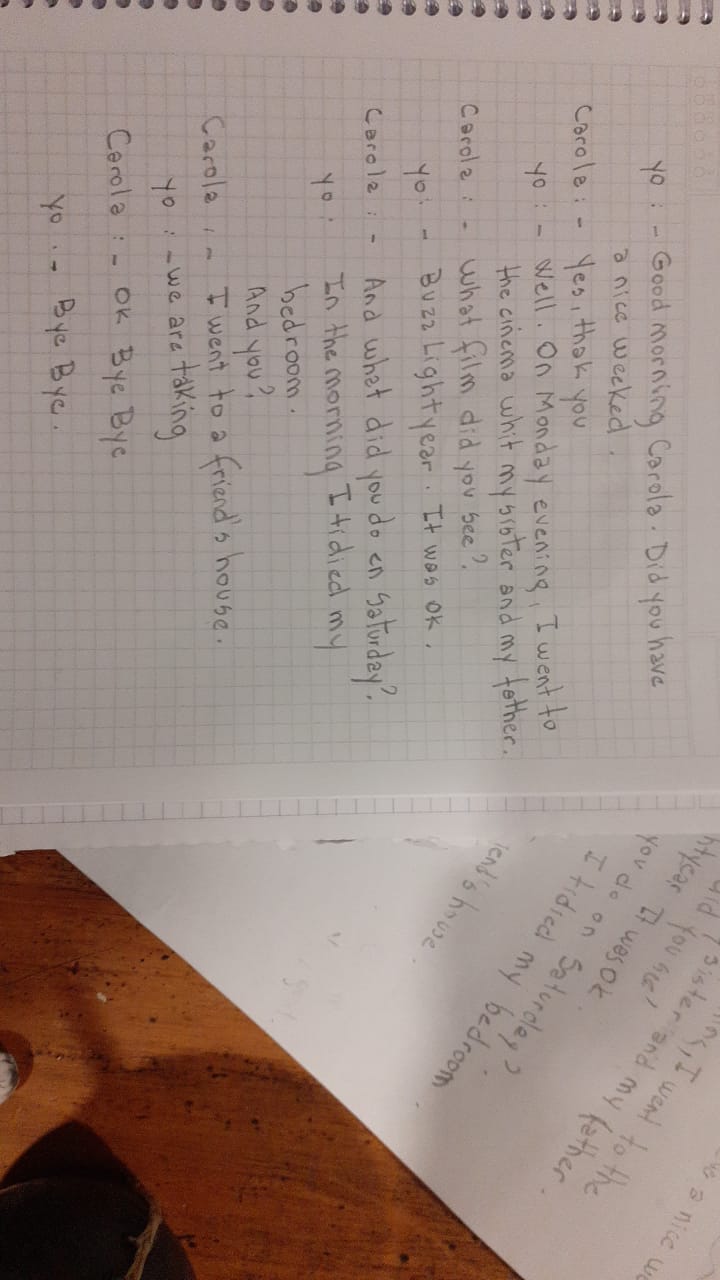 yo : - Good morning Carola. Did you have
a nice weeked.
Carola : - Yes, thak you
yo : - Well. On Monday evening, I went to
the cinema whit my sister and my father.
Carola : - What film did you see?
yo : - Buzz Lightyear. It was ok.
Carola : - And what did you do en Saturday?
yo : In the morning I tidied my
bedroom.
And you?
Carola : - I went to a friend's house.
yo : - we are taking
Carola : - OK Bye Bye
yo : - Bye Bye.
a nice
I went to the
sister and my father.
you see,
It was ok.
you do on Saturday?
I tidied my bedroom
house.